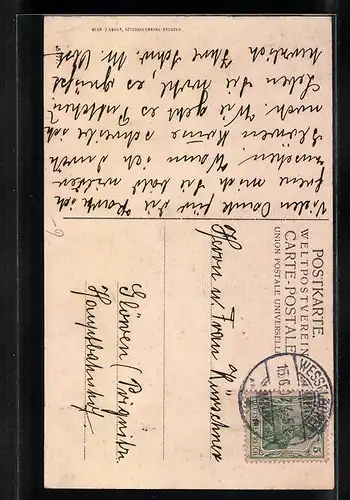 POSTKARTE.
WELTPOSTVEREIN
CARTE-POSTALE
UNION POSTALE UNIVERSELLE
Herrn u. Frau Kürschner
Glöwen (Prignitz)
Hauptbahnhof.
Vielen Dank für die Karte, ich
freue mich Sie bald wieder
zu sehen. Wann ich durch
Glöwen komme schreibe ich
noch. Wie geht es
Leben Sie wohl, es grüßt
herzlich Ihre Schw. M.
5